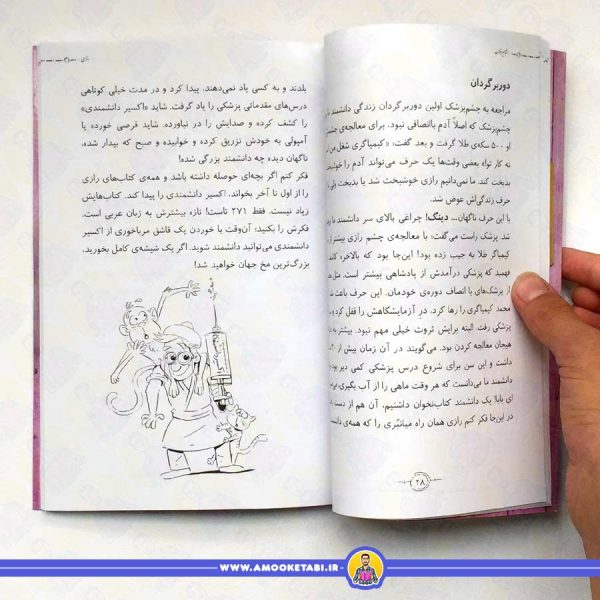 دوربرگردان
مراجعه به چشم‌پزشک اولین دوربرگردان زندگی دانشمند ما
چشم‌پزشک که اصلاً آدم باانصافی نبود، برای معالجه‌ی چشم
او ۵۰۰ سکه‌ی طلا گرفت و بعد گفت: «کیمیاگری شغل من
نه کار تو!» بعضی وقت‌ها یک حرف می‌تواند آدم را خوشبخت
بدبخت کند. ما نمی‌دانیم رازی خوشبخت شد یا بدبخت ولی
حرف زندگی‌اش عوض شد.
با این حرف ناگهان... دینگ! چراغی بالای سر دانشمند ما
شد. پزشک راست می‌گفت؛ با معالجه‌ی چشم رازی بیشتر از
کیمیاگر طلا به جیب زده بود! این‌جا بود که بالاخره
فهمید که پزشکی درآمدش از پادشاهی بیشتر است. مثل
از پزشک‌های با انصاف دوره‌ی خودمان. این حرف باعث شد
محمد کیمیاگری را رها کرد، در آزمایشگاهش را قفل کرد و
پزشکی رفت. البته برایش ثروت خیلی مهم نبود. بیشتر به
هیجان معالجه کردن بود. می‌گویند در آن زمان بیش از
داشت و این سن برای شروع درس پزشکی کمی دیر بود
دانشمند ما می‌دانست که هر وقت ماهی را از آب بگیری،
ای بابا! یک دانشمند کتاب‌نخوان داشتیم، آن هم از دست
در این‌جا فکر کنم رازی همان راه میانبُری را که همه‌ی
۲۸
بلدند و به کسی یاد نمی‌دهند، پیدا کرد و در مدت خیلی کوتاهی
درس‌های مقدماتی پزشکی را یاد گرفت. شاید «اکسیر دانشمندی»
را کشف کرده و صدایش را در نیاورده. شاید قرصی خورده یا
آمپولی به خودش تزریق کرده و خوابیده و صبح که بیدار شده،
ناگهان دیده چه دانشمند بزرگی شده!
فکر کنم اگر بچه‌ای حوصله داشته باشد و همه‌ی کتاب‌های رازی
را از اول تا آخر بخواند، اکسیر دانشمندی را پیدا کند. کتاب‌هایش
زیاد نیست. فقط ۲۷۱ تاست! تازه بیشترش به زبان عربی است.
فکرش را بکنید؛ آن‌وقت با خوردن یک قاشق مرباخوری از اکسیر
دانشمندی می‌توانید دانشمند شوید. اگر یک شیشه‌ی کامل بخورید،
بزرگ‌ترین مخ جهان خواهید شد!
WWW.AMOOKETABI.IR